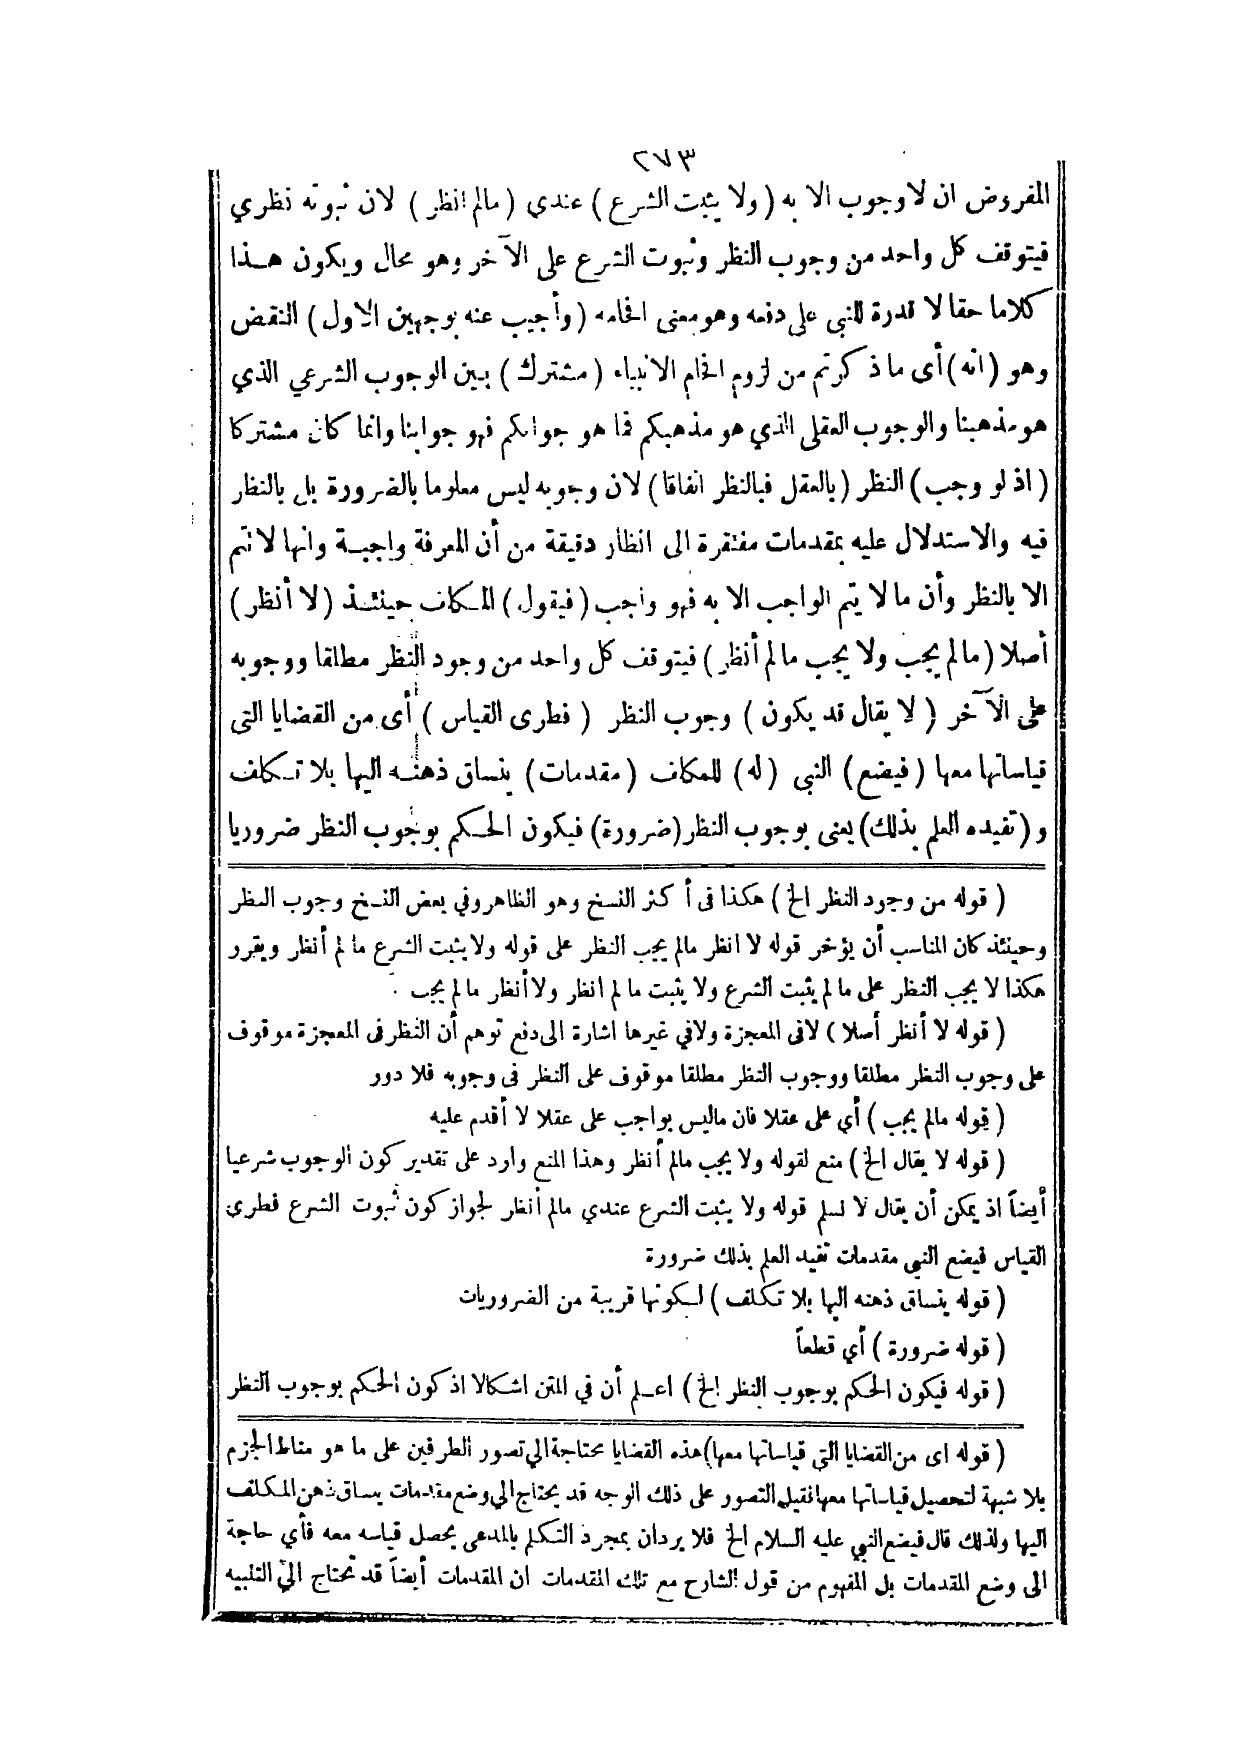 ٢٧٣
المفروض ان لاوجوب الا به ( ولا يثبت الشرع ) عندي ( مالم انظر ) لان ثبوته نظري
فيتوقف كل واحد من وجوب النظر وثبوت الشرع على الآخر وهو محال ويكون هـذا
كلاما حقا لا قدرة للنبي على دفعه وهو معنى افحامه ( وأجيب عنه بوجهين الاول ) النقض
وهو ( انه ) أى ما ذكرتم من لزوم افحام الانبياء ( مشترك ) بين الوجوب الشرعي الذي
هو مذهبنا والوجوب العقلى الذي هو مذهبكم فما هو جوابكم فهو جوابنا وانما كان مشتركا
( اذ لو وجب ) النظر ( بالعقل فبالنظر اتفاقا ) لان وجوبه ليس معلوما بالضرورة بل بالنظار
فيه والاستدلال عليه بمقدمات مفتقرة الى انظار دقيقة من أن المعرفة واجبـة وانها لا تتم
الا بالنظر وأن ما لا يتم الواجب الا به فهو واجب ( فيقول ) المكلف حينئـذ ( لا أنظر )
أصلا ( مالم يجب ولا يجب مالم أنظر ) فيتوقف كل واحد من وجود النظر مطلقا ووجوبه
على الآخر ( لا يقال قد يكون ) وجوب النظر ( فطرى القياس ) أى من القضايا التى
قياساتها معها ( فيضع ) النبي ( له ) للمكلف ( مقدمات ) ينساق ذهنـه اليها بلا تـكلف
و ( تفيده العلم بذلك ) يعنى بوجوب النظر ( ضرورة ) فيكون الحـكم بوجوب النظر ضروريا
( قوله من وجود النظر الخ ) هكذا فى أكثر النسخ وهو الظاهر وفي بعض النسخ وجوب النظر
وحينئذ كان المناسب أن يؤخر قوله لا انظر مالم يجب النظر على قوله ولا يثبت الشرع ما لم أنظر ويقرر
هكذا لا يجب النظر على ما لم يثبت الشرع ولا يثبت ما لم انظر ولا أنظر ما لم يجب .
( قوله لا أنظر أصلا ) لافى المعجزة ولافي غيرها اشارة الى دفع توهم أن النظر فى المعجزة موقوف
على وجوب النظر مطلقا ووجوب النظر مطلقا موقوف على النظر فى وجوبه فلا دور
( قوله مالم يجب ) أي على عقلا فان ماليس بواجب على عقلا لا أقدم عليه
( قوله لا يقال الخ ) منع لقوله ولا يجب مالم أنظر وهذا المنع وارد على تقدير كون الوجوب شرعيا
أيضاً اذ يمكن أن يقال لا نسلم قوله ولا يثبت الشرع عندي مالم أنظر لجواز كون ثبوت الشرع فطرى
القياس فيضع النبي مقدمات تفيد العلم بذلك ضرورة
( قوله ينساق ذهنه اليها بلا تكلف ) لـكونها قريبة من الضروريات
( قوله ضرورة ) أي قطعاً
( قوله فيكون الحكم بوجوب النظر الخ ) اعـلم أن في المتن اشكالا اذ كون الحكم بوجوب النظر
( قوله اى من القضايا التى قياساتها معها ) هذه القضايا محتاجة الي تصور الطرفين على ما هو مناط الجزم
بلا شبهة لتحصيل قياساتها معها فقيل التصور على ذلك الوجه قد يحتاج الي وضع مقدمات ينساق ذهن المكلف
اليها ولذلك قال فيضع النبي عليه السلام الخ فلا يرد ان بمجرد التكلم بالمدعى يحصل قياسه معه فأي حاجة
الى وضع المقدمات بل المفهوم من قول الشارح مع تلك المقدمات ان المقدمات أيضاً قد تحتاج الي التنبيه